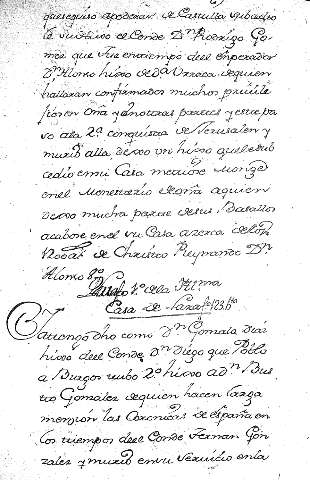 que se quiso apoderar de Castilla subcedio
le su hixo el Conde Dn Rodrigo Go-
mez que fue en tiempo del enperador
Dn Alonso hixo de Da Urraca de quien
hallaran confirmados muchos privile
gios en Oña y en otras partes y este pa
so a la 2a conquista de Jerusalen y
murio alla dexo un hixo que le sub
cedio en mi Casa
en el Monesterio de Oña a quien
dexo mucha parte de sus Basallos
acabose en el su Casa azerca de los
de Christo Reynando Dn
Alonso 8o
de la Illma
Casa de
Ya tengo dho como Dn Gonzalo Diaz
hixo del Conde Dn Diego que Poblo
a Burgos tubo 2o hixo a Dn Bus
tos Gonzalez de quien hacen larga
menzion las Coronicas de españa en
los tiempos del Conde Fernan Gon
zalez y murio en su servicio en la